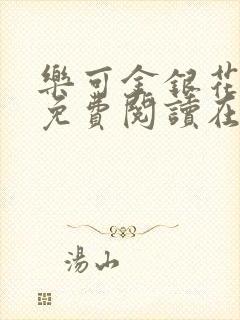 樂可金銀花
免費閱讀在
湯山